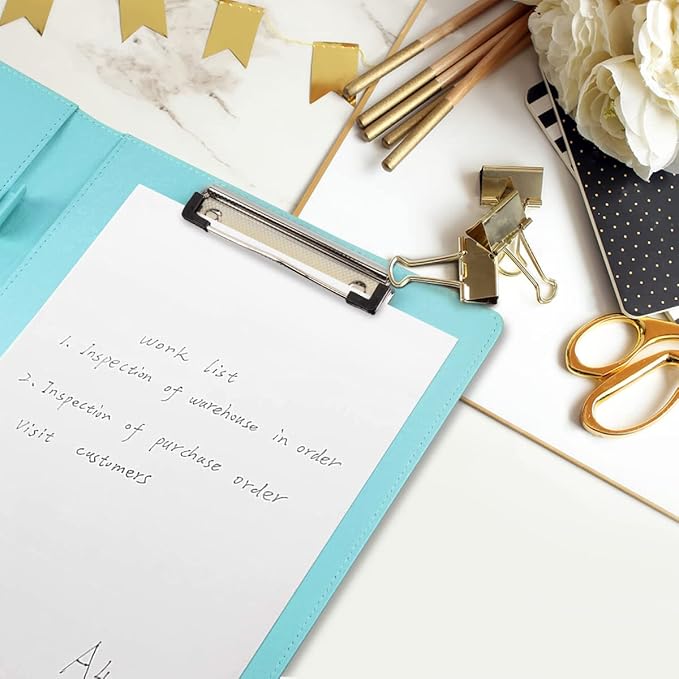 Work list
1. Inspection of warehouse in order
2. Inspection of purchase order
Visit customers
A4